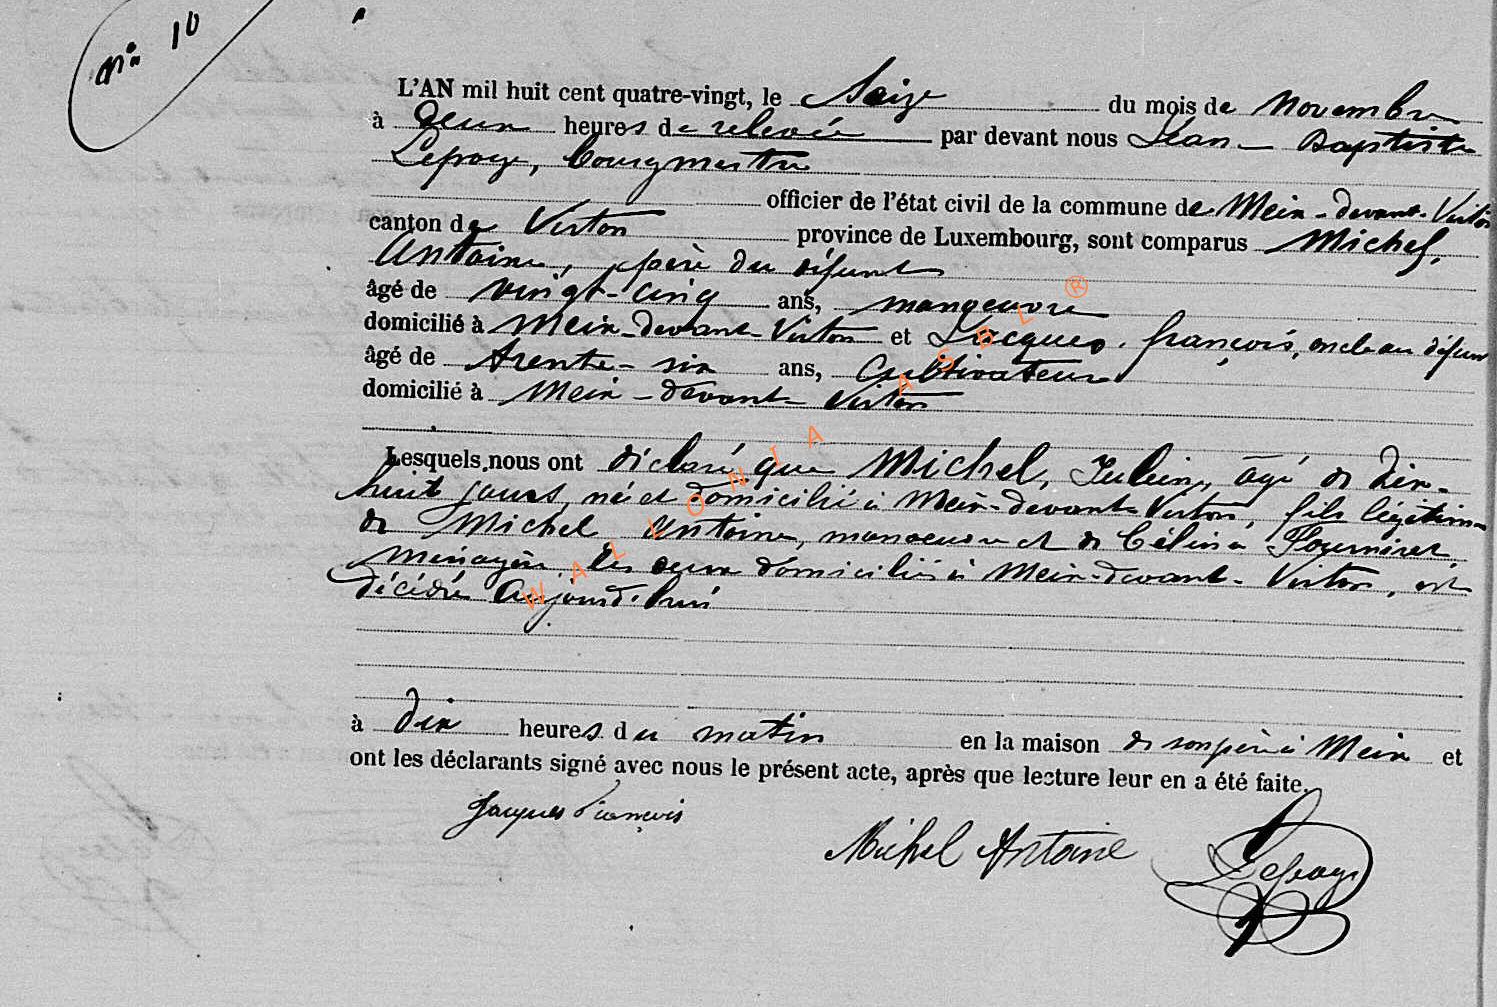 N° 10
L'AN mil huit cent quatre-vingt, le Seize du mois de Novembre
à Deux heures de relevée par devant nous Jean Baptiste
Lepage, bourgmestre
officier de l'état civil de la commune de Meix-devant-Virton
canton de Virton province de Luxembourg, sont comparus Michel,
Antoine, père du défunt
âgé de vingt-cinq ans, manoeuvre
domicilié à Meix-devant-Virton et Jacques, françois, oncle au défunt
âgé de trente-six ans, Cultivateur
domicilié à Meix-devant-Virton
Lesquels nous ont déclaré que Michel, Julien, âgé de dix-
huit jours, né et domicilié à Meix-devant-Virton, fils légitime
de Michel Antoine, manoeuvre et de Célina Fourniret
ménagère les deux domiciliés à Meix-devant-Virton, est
décédé aujourd'hui
à dix heures du matin en la maison de son père à Meix et
ont les déclarants signé avec nous le présent acte, après que lecture leur en a été faite.
Jacques François
Michel Antoine
Lepage
WALLONIA ASBL ®